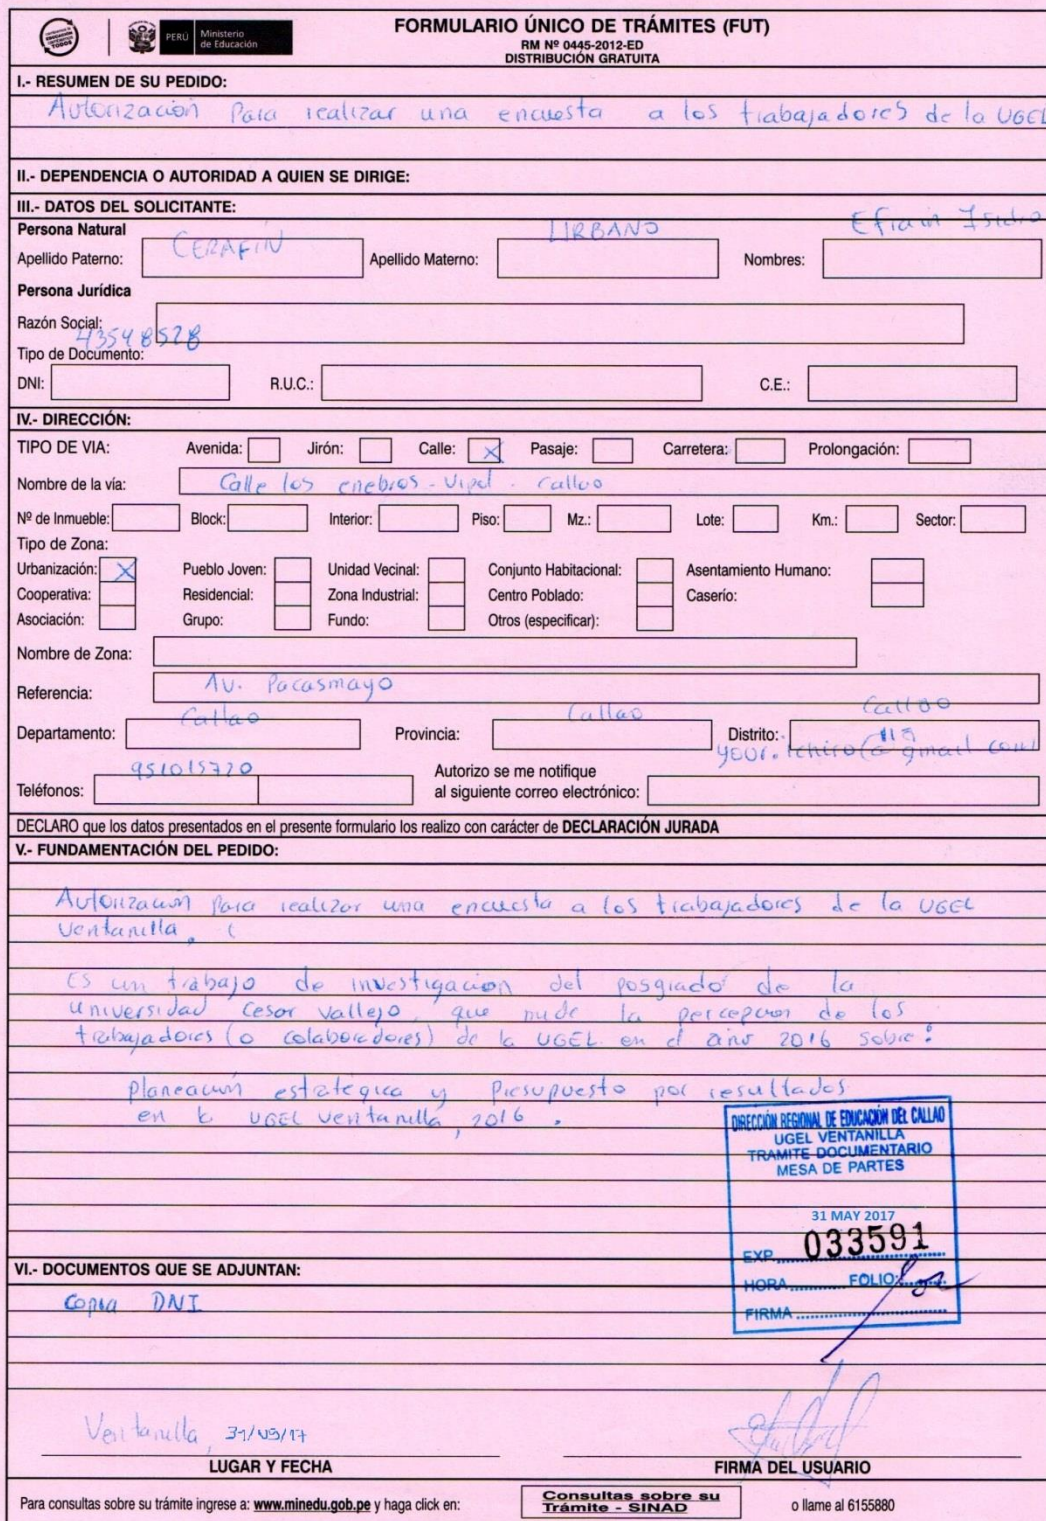 PERÚ Ministerio de Educación
FORMULARIO ÚNICO DE TRÁMITES (FUT)
RM Nº 0445-2012-ED
DISTRIBUCIÓN GRATUITA
I.- RESUMEN DE SU PEDIDO:
Autorización Para realizar una encuesta a los trabajadores de la UGEL
II.- DEPENDENCIA O AUTORIDAD A QUIEN SE DIRIGE:
III.- DATOS DEL SOLICITANTE:
Persona Natural
Apellido Paterno: CERAFIN Apellido Materno: URBANO Nombres: Efrain Isidro
Persona Jurídica
Razón Social:
43548528
Tipo de Documento:
DNI: R.U.C.: C.E.:
IV.- DIRECCIÓN:
TIPO DE VIA: Avenida: Jirón: Calle: X Pasaje: Carretera: Prolongación:
Nombre de la vía: Calle los enebros - Vipol - Callao
Nº de Inmueble: Block: Interior: Piso: Mz.: Lote: Km.: Sector:
Tipo de Zona:
Urbanización: X Pueblo Joven: Unidad Vecinal: Conjunto Habitacional: Asentamiento Humano:
Cooperativa: Residencial: Zona Industrial: Centro Poblado: Caserío:
Asociación: Grupo: Fundo: Otros (especificar):
Nombre de Zona:
Referencia: Av. Pacasmayo
Departamento: Callao Provincia: Callao Distrito: Callao
Teléfonos: 951015720 Autorizo se me notifique
al siguiente correo electrónico: @gmail com
DECLARO que los datos presentados en el presente formulario los realizo con carácter de DECLARACIÓN JURADA
V.- FUNDAMENTACIÓN DEL PEDIDO:
Autorización para realizar una encuesta a los trabajadores de la UGEL
Ventanilla. (
Es un trabajo de investigación del posgrado de la
Universidad Cesar Vallejo, que mide la percepcion de los
trabajadores (o colaboradores) de la UGEL en el año 2016 sobre:
Planeación estratégica y Presupuesto por resultados
en la UGEL Ventanilla, 2016.
DIRECCIÓN REGIONAL DE EDUCACIÓN DEL CALLAO
UGEL VENTANILLA
TRAMITE DOCUMENTARIO
MESA DE PARTES
31 MAY 2017
EXP. 033591
HORA.......... FOLIO:..........
FIRMA ..............................
VI.- DOCUMENTOS QUE SE ADJUNTAN:
Copia DNI
Ventanilla, 31/05/17
LUGAR Y FECHA FIRMA DEL USUARIO
Para consultas sobre su trámite ingrese a: www.minedu.gob.pe y haga click en: Consultas sobre su Trámite - SINAD o llame al 6155880